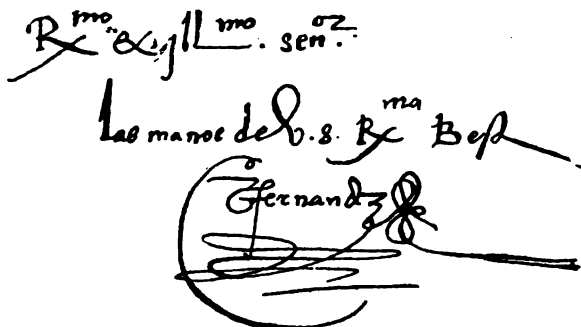 Rx^mo. & yll^mo. sen^or.
las manos de V. S. Rx^ma Bes
Fernandz